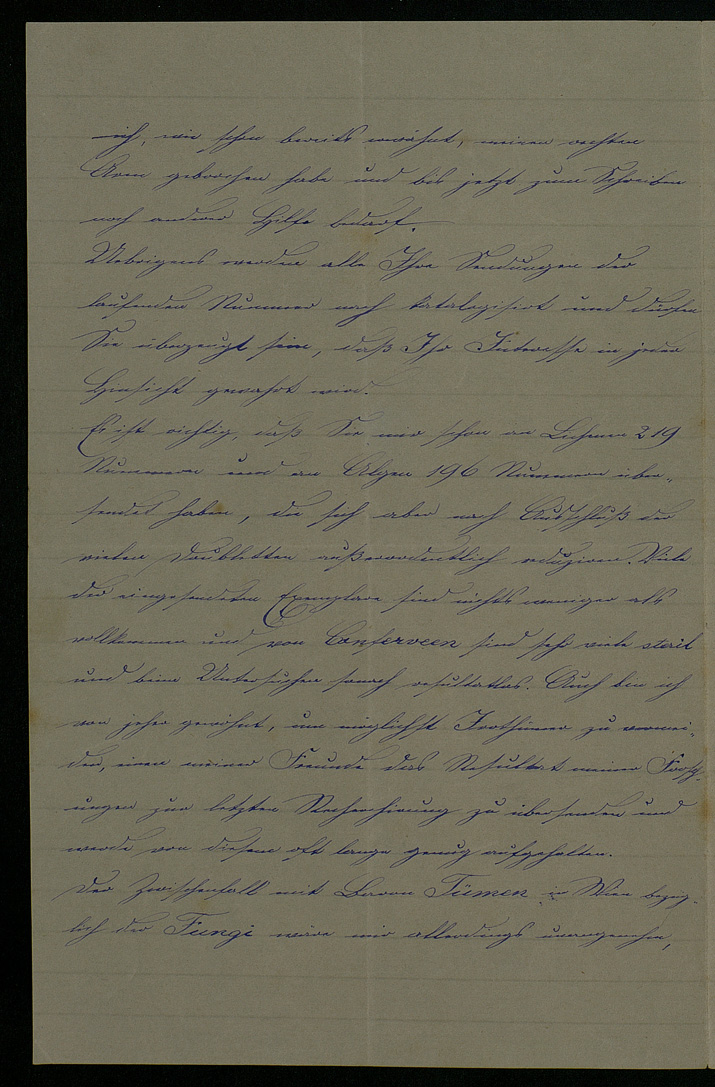 ich, wie schon bereits erwähnt, meinen rechten
Arm gebrochen habe und bis jetzt zum Schreiben
noch anderer Hilfe bedarf.
Uebrigens werden alle Ihre Sendungen der
laufenden Nummer nach katalogisirt und dürfen
Sie überzeugt sein, daß Ihr Interesse in jeder
Hinsicht gewahrt wird.
Es ist richtig, daß Sie mir schon an Lichenen 219
Nummern und an Algen 196 Nummern über-
sendet haben, die sich aber nach Ausschluß der
vielen Doubletten außerordentlich reduziren. Viele
der eingesendeten Exemplare sind nichts weniger als
vollkommen und von Conferveen sind sehr viele steril
und beim Untersuchen sonach resultatlos. Auch bin ich
von jeher gewöhnt, um möglichst Irrthümer zu vermei-
den, einem meiner Freunde das Resultat meiner Forsch-
ungen zur letzten Recherchirung zu übersenden und
werde von diesem oft lange genug aufgehalten.
Der Zwischenfall mit Baron Tümen in Wien bezüg-
lich der Fungi wäre mir allerdings unangenehm,